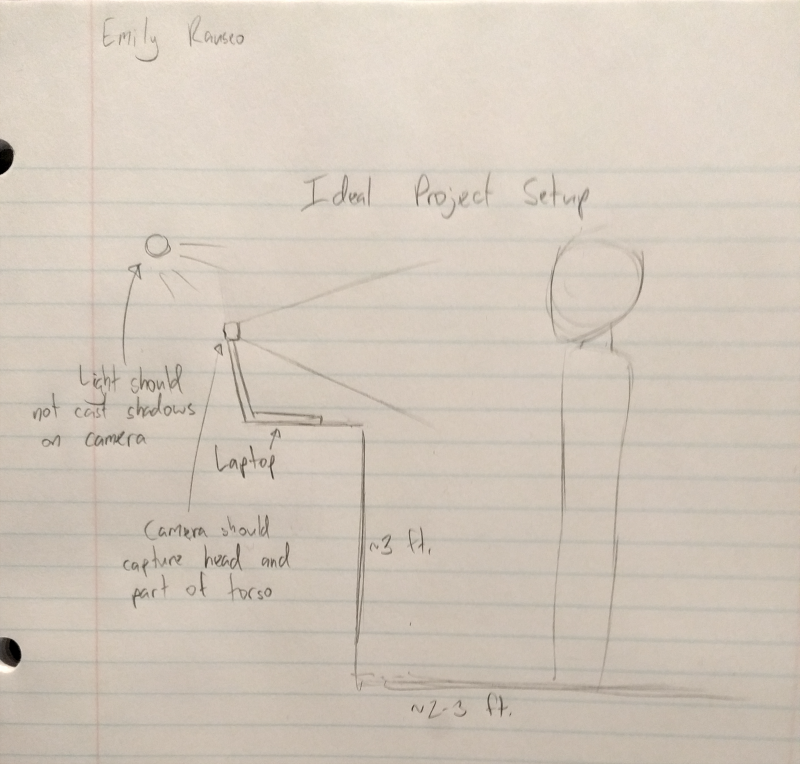 Emily Rauseo
Ideal Project Setup
Light should
not cast shadows
on camera
Laptop
Camera should
capture head and
part of torso
~3 ft.
~2-3 ft.